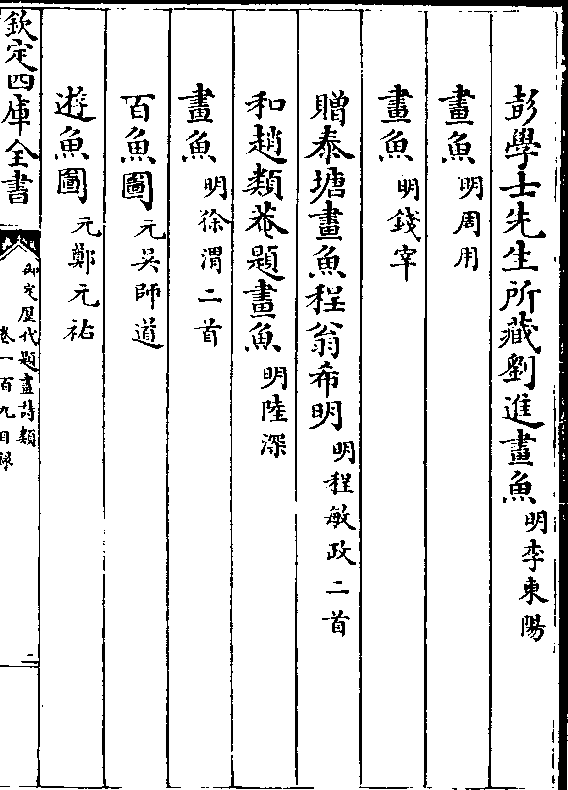 彭學士先生所藏劉進畫魚 明李東陽
畫魚 明周用
畫魚 明錢宰
贈泰塘畫魚程翁希明 明程敏政二首
和趙類菴題畫魚 明陸深
畫魚 明徐渭二首
百魚圖 元吳師道
遊魚圖 元鄭元祐
欽定四庫全書
御定歷代題畫詩類
卷一百九目録
二